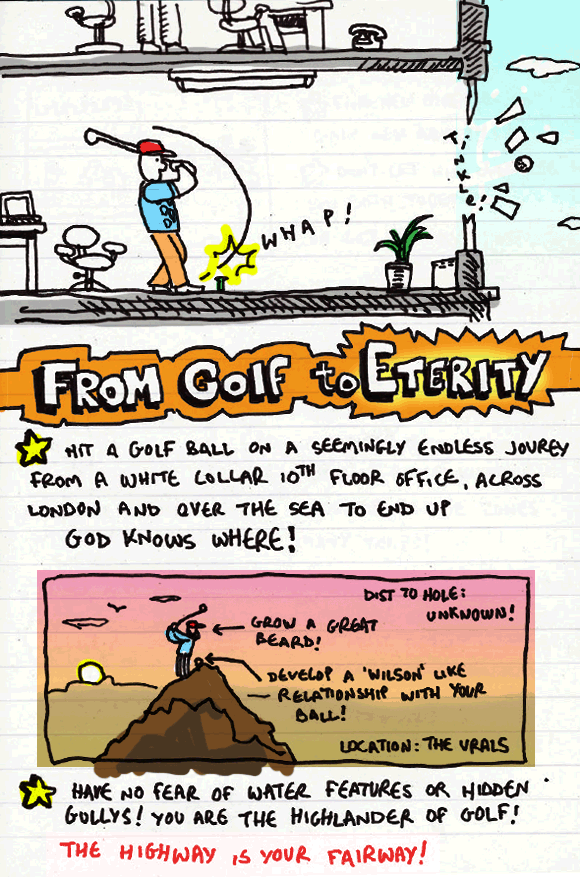 WHAP!
Tinkle!
FROM GOLF to ETERITY
HIT A GOLF BALL ON A SEEMINGLY ENDLESS JOUREY
FROM A WHITE COLLAR 10TH FLOOR OFFICE, ACROSS
LONDON AND OVER THE SEA TO END UP
GOD KNOWS WHERE!
DIST TO HOLE:
UNKNOWN!
GROW A GREAT
BEARD!
DEVELOP A 'WILSON' LIKE
RELATIONSHIP WITH YOUR
BALL!
LOCATION: THE URALS
HAVE NO FEAR OF WATER FEATURES OR HIDDEN
GULLYS! YOU ARE THE HIGHLANDER OF GOLF!
THE HIGHWAY IS YOUR FAIRWAY!